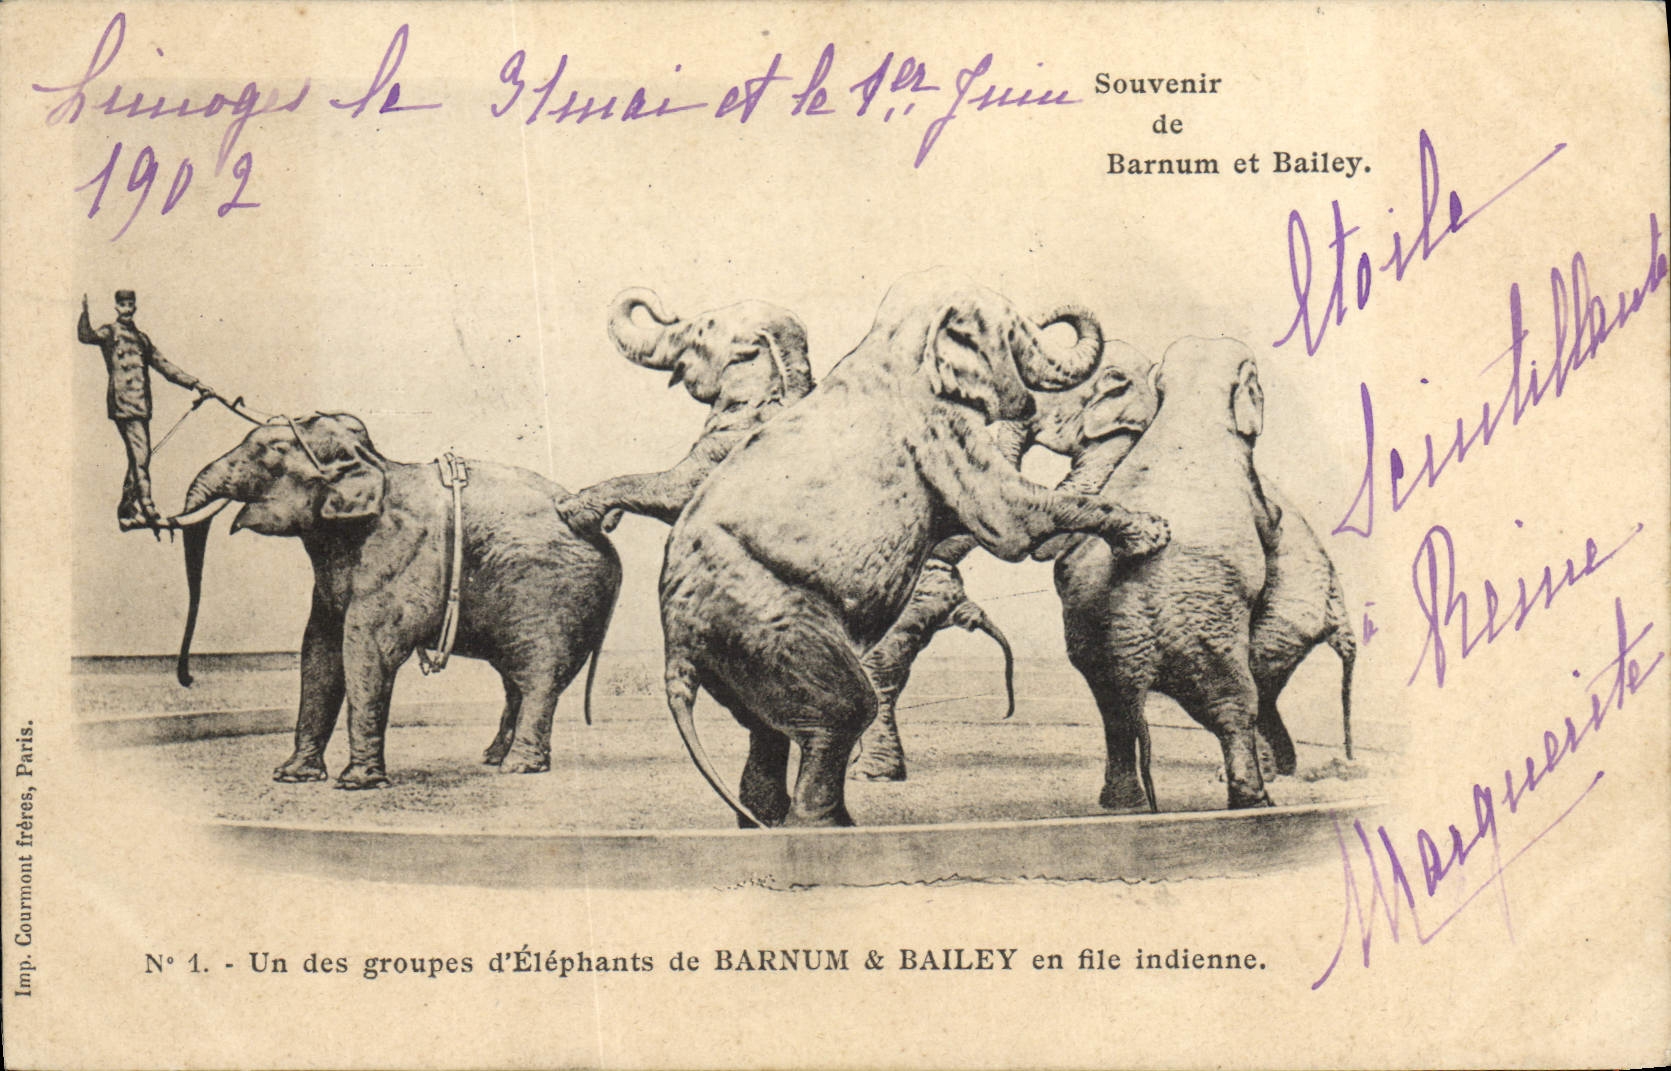 Limoges le 31 mai et le 1er Juin
1902
Souvenir
de
Barnum et Bailey.
Etoile
Scintillante
à Reine
Marguerite
Imp. Courmont frères, Paris.
N° 1. - Un des groupes d'Éléphants de BARNUM & BAILEY en file indienne.